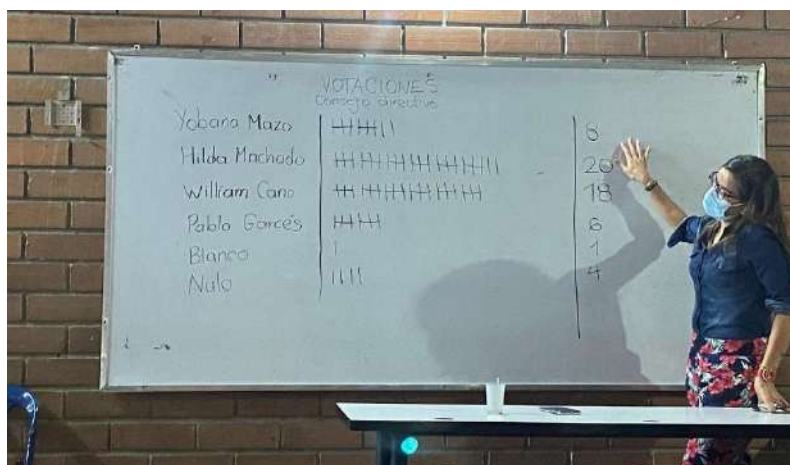 VOTACIONES
Consejo directivo
Yobana Mazo 8
Hilda Machado 20
William Cano 18
Pablo Garcés 6
Blanco 1
Nulo 4